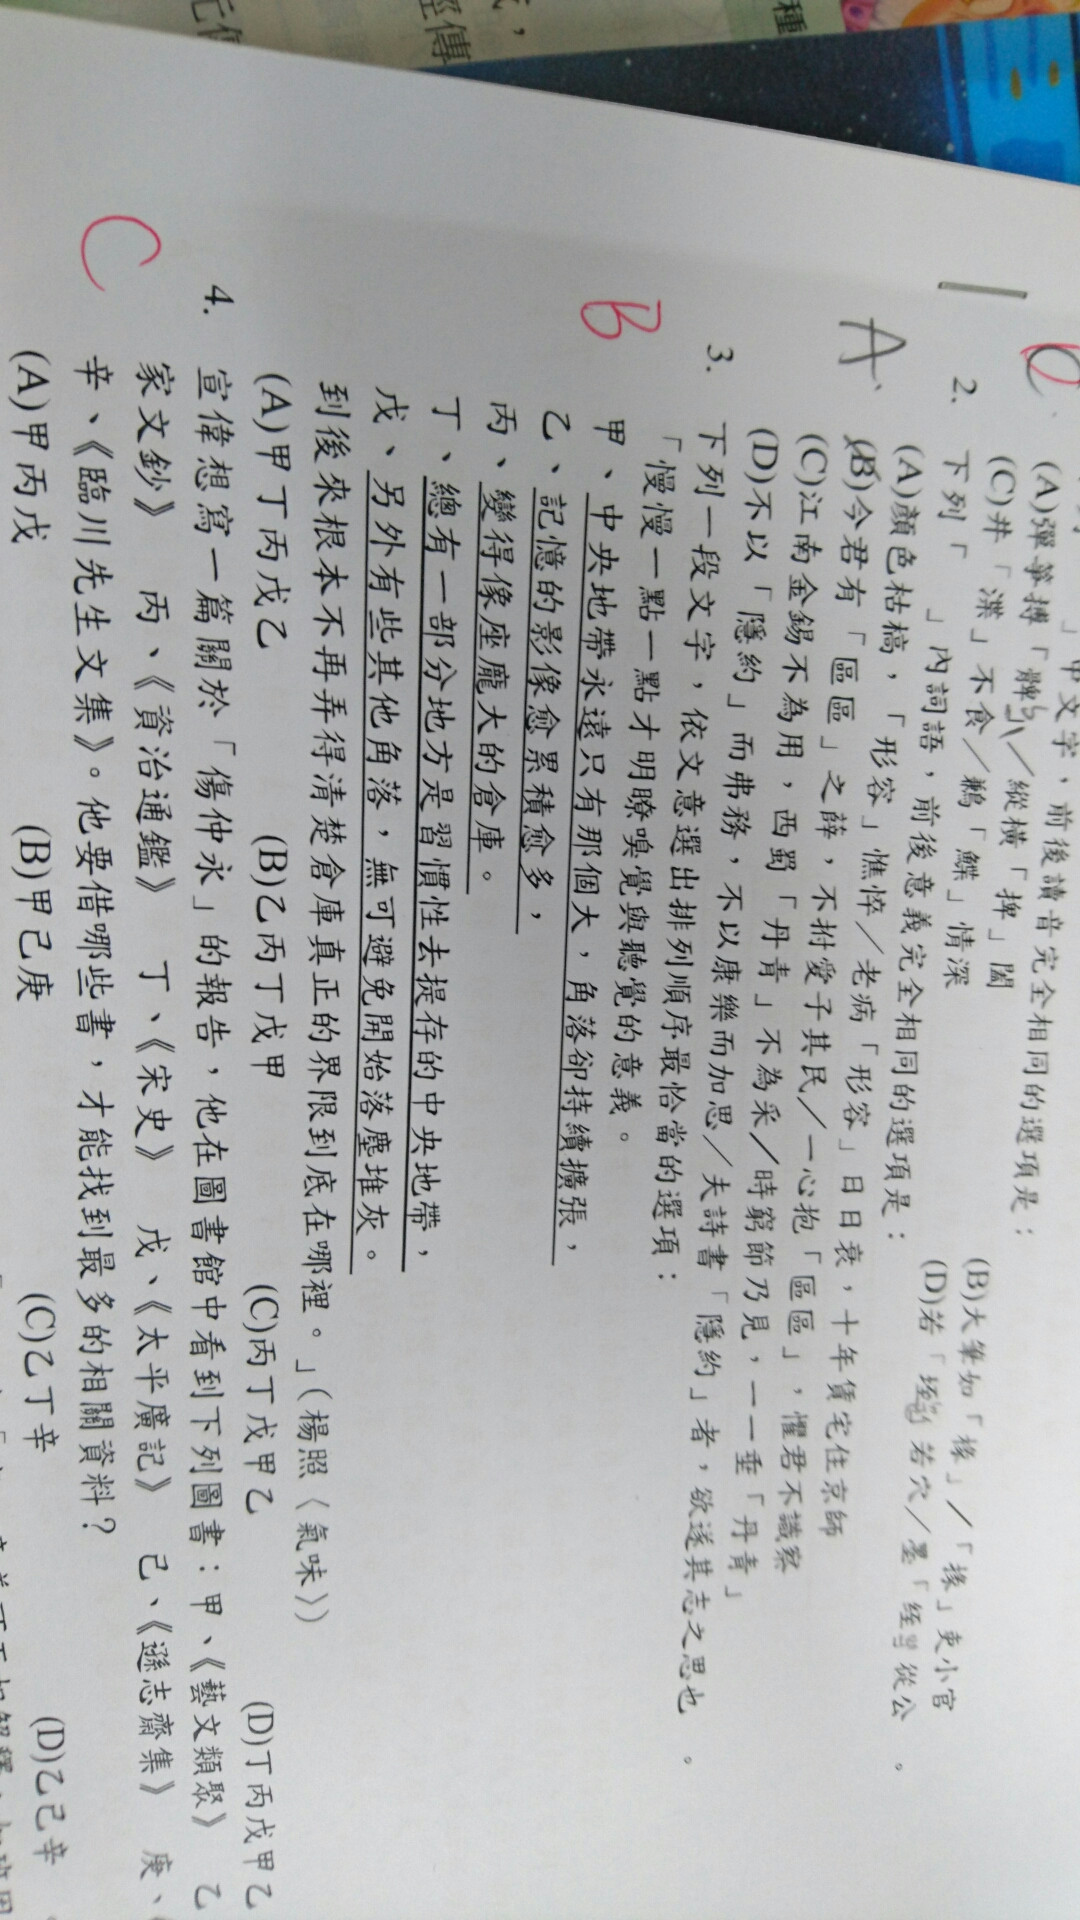 種
傳
」中文字，前後讀音完全相同的選項是：
(A)彈箏搏「髀」／縱橫「捭」闔
(B)大筆如「椽」／「掾」吏小官
(C)井「渫」不食／鶼「鰈」情深
(D)若「垤」若穴／墨「絰」從公。
A
2. 下列「 」內詞語，前後意義完全相同的選項是：
(A)顏色枯槁，「形容」憔悴／老病「形容」日日衰，十年賃宅住京師
(B)今君有「區區」之薛，不拊愛子其民／一心抱「區區」，懼君不識察
(C)江南金錫不為用，西蜀「丹青」不為采／時窮節乃見，一一垂「丹青」
(D)不以「隱約」而弗務，不以康樂而加思／夫詩書「隱約」者，欲遂其志之思也。
B
3. 下列一段文字，依文意選出排列順序最恰當的選項：
「慢慢一點一點才明瞭嗅覺與聽覺的意義。
甲、中央地帶永遠只有那個大，角落卻持續擴張，
乙、記憶的影像愈累積愈多，
丙、變得像座龐大的倉庫。
丁、總有一部分地方是習慣性去提存的中央地帶，
戊、另外有些其他角落，無可避免開始落塵堆灰。
到後來根本不再弄得清楚倉庫真正的界限到底在哪裡。」（楊照〈氣味〉）
(A)甲丁丙戊乙 (B)乙丙丁戊甲 (C)丙丁戊甲乙 (D)丁丙戊甲乙
C
4. 宣偉想寫一篇關於「傷仲永」的報告，他在圖書館中看到下列圖書：甲、《藝文類聚》 乙
家文鈔》 丙、《資治通鑑》 丁、《宋史》 戊、《太平廣記》 己、《遜志齋集》 庚、
辛、《臨川先生文集》。他要借哪些書，才能找到最多的相關資料？
(A)甲丙戊 (B)甲己庚 (C)乙丁辛 (D)乙己辛